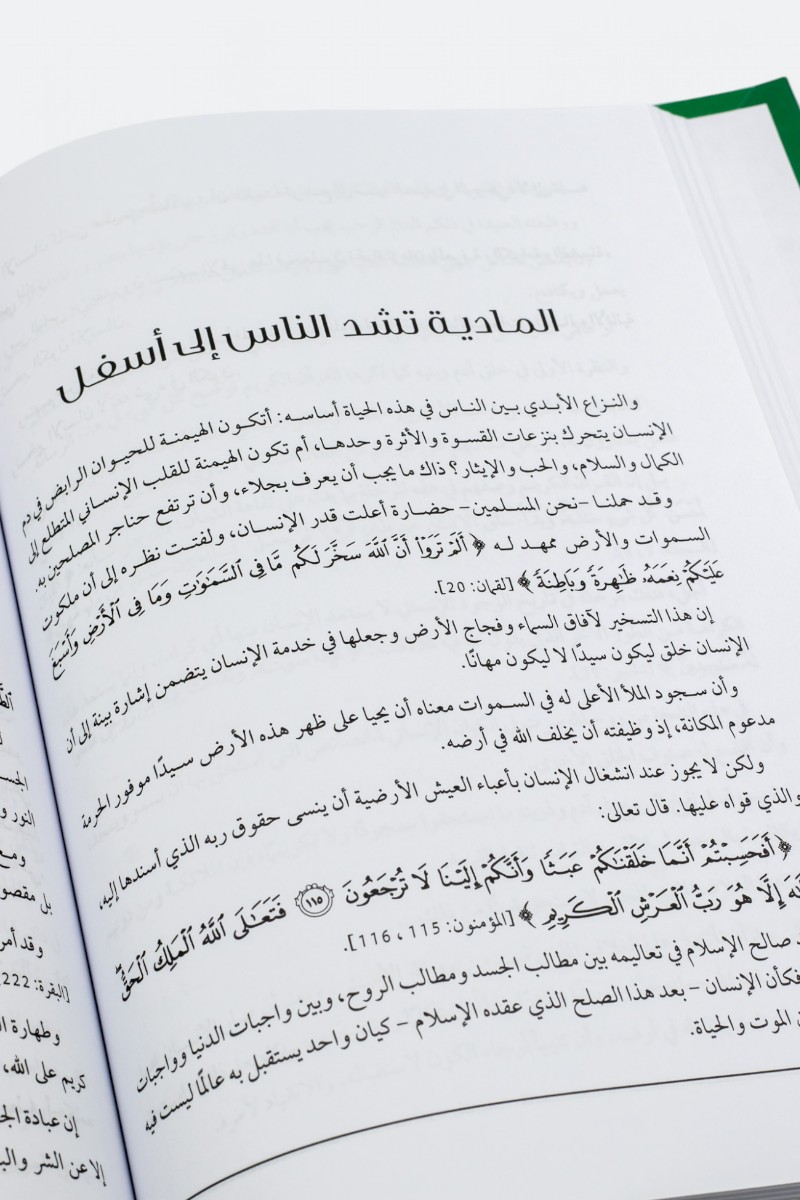 المادية تشد الناس إلى أسفل
والنزاع الأبدي بين الناس في هذه الحياة أساسه: أتكون الهيمنة للحيوان الرابض في دم
الإنسان يتحرك بنزعات القسوة والأثرة وحدها، أم تكون الهيمنة للقلب الإنساني المتطلع إلى
الكمال والسلام، والحب والإيثار؟ ذاك ما يجب أن يعرف بجلاء، وأن ترتفع حناجر المصلحين به.
وقد حملنا -نحن المسلمين- حضارة أعلت قدر الإنسان، ولفتت نظره إلى أن ملكوت
السموات والأرض ممهد له ﴿أَلَمْ تَرَوْا أَنَّ اللَّهَ سَخَّرَ لَكُم مَّا فِي السَّمَٰوَٰتِ وَمَا فِي الْأَرْضِ وَأَسْبَغَ
عَلَيْكُمْ نِعَمَهُۥ ظَٰهِرَةً وَبَاطِنَةً﴾ [لقمان: 20].
إن هذا التسخير لآفاق السماء وفجاج الأرض وجعلها في خدمة الإنسان يتضمن إشارة بينة إلى أن
الإنسان خلق ليكون سيدًا لا ليكون مهانًا.
وأن سجود الملأ الأعلى له في السموات معناه أن يحيا على ظهر هذه الأرض سيدًا موفور الحرمة
مدعوم المكانة، إذ وظيفته أن يخلف الله في أرضه.
ولكن لا يجوز عند انشغال الإنسان بأعباء العيش الأرضية أن ينسى حقوق ربه الذي أسندها إليه،
والذي قواه عليها. قال تعالى:
﴿أَفَحَسِبْتُمْ أَنَّمَا خَلَقْنَٰكُمْ عَبَثًا وَأَنَّكُمْ إِلَيْنَا لَا تُرْجَعُونَ ١١٥ فَتَعَٰلَى اللَّهُ الْمَلِكُ الْحَقُّ
إِلَّا هُوَ رَبُّ الْعَرْشِ الْكَرِيمِ﴾ [المؤمنون: 115، 116].
صالح الإسلام في تعاليمه بين مطالب الجسد ومطالب الروح، وبين واجبات الدنيا وواجبات
فكأن الإنسان - بعد هذا الصلح الذي عقده الإسلام - كيان واحد يستقبل به عالمًا ليست فيه
الموت والحياة.
النور و
ومع
بل مقصو
وقد أمر
[البقرة: 222
وطهارة ا
كريم على الله،
إن عبادة الج
إلا عن الشر والب